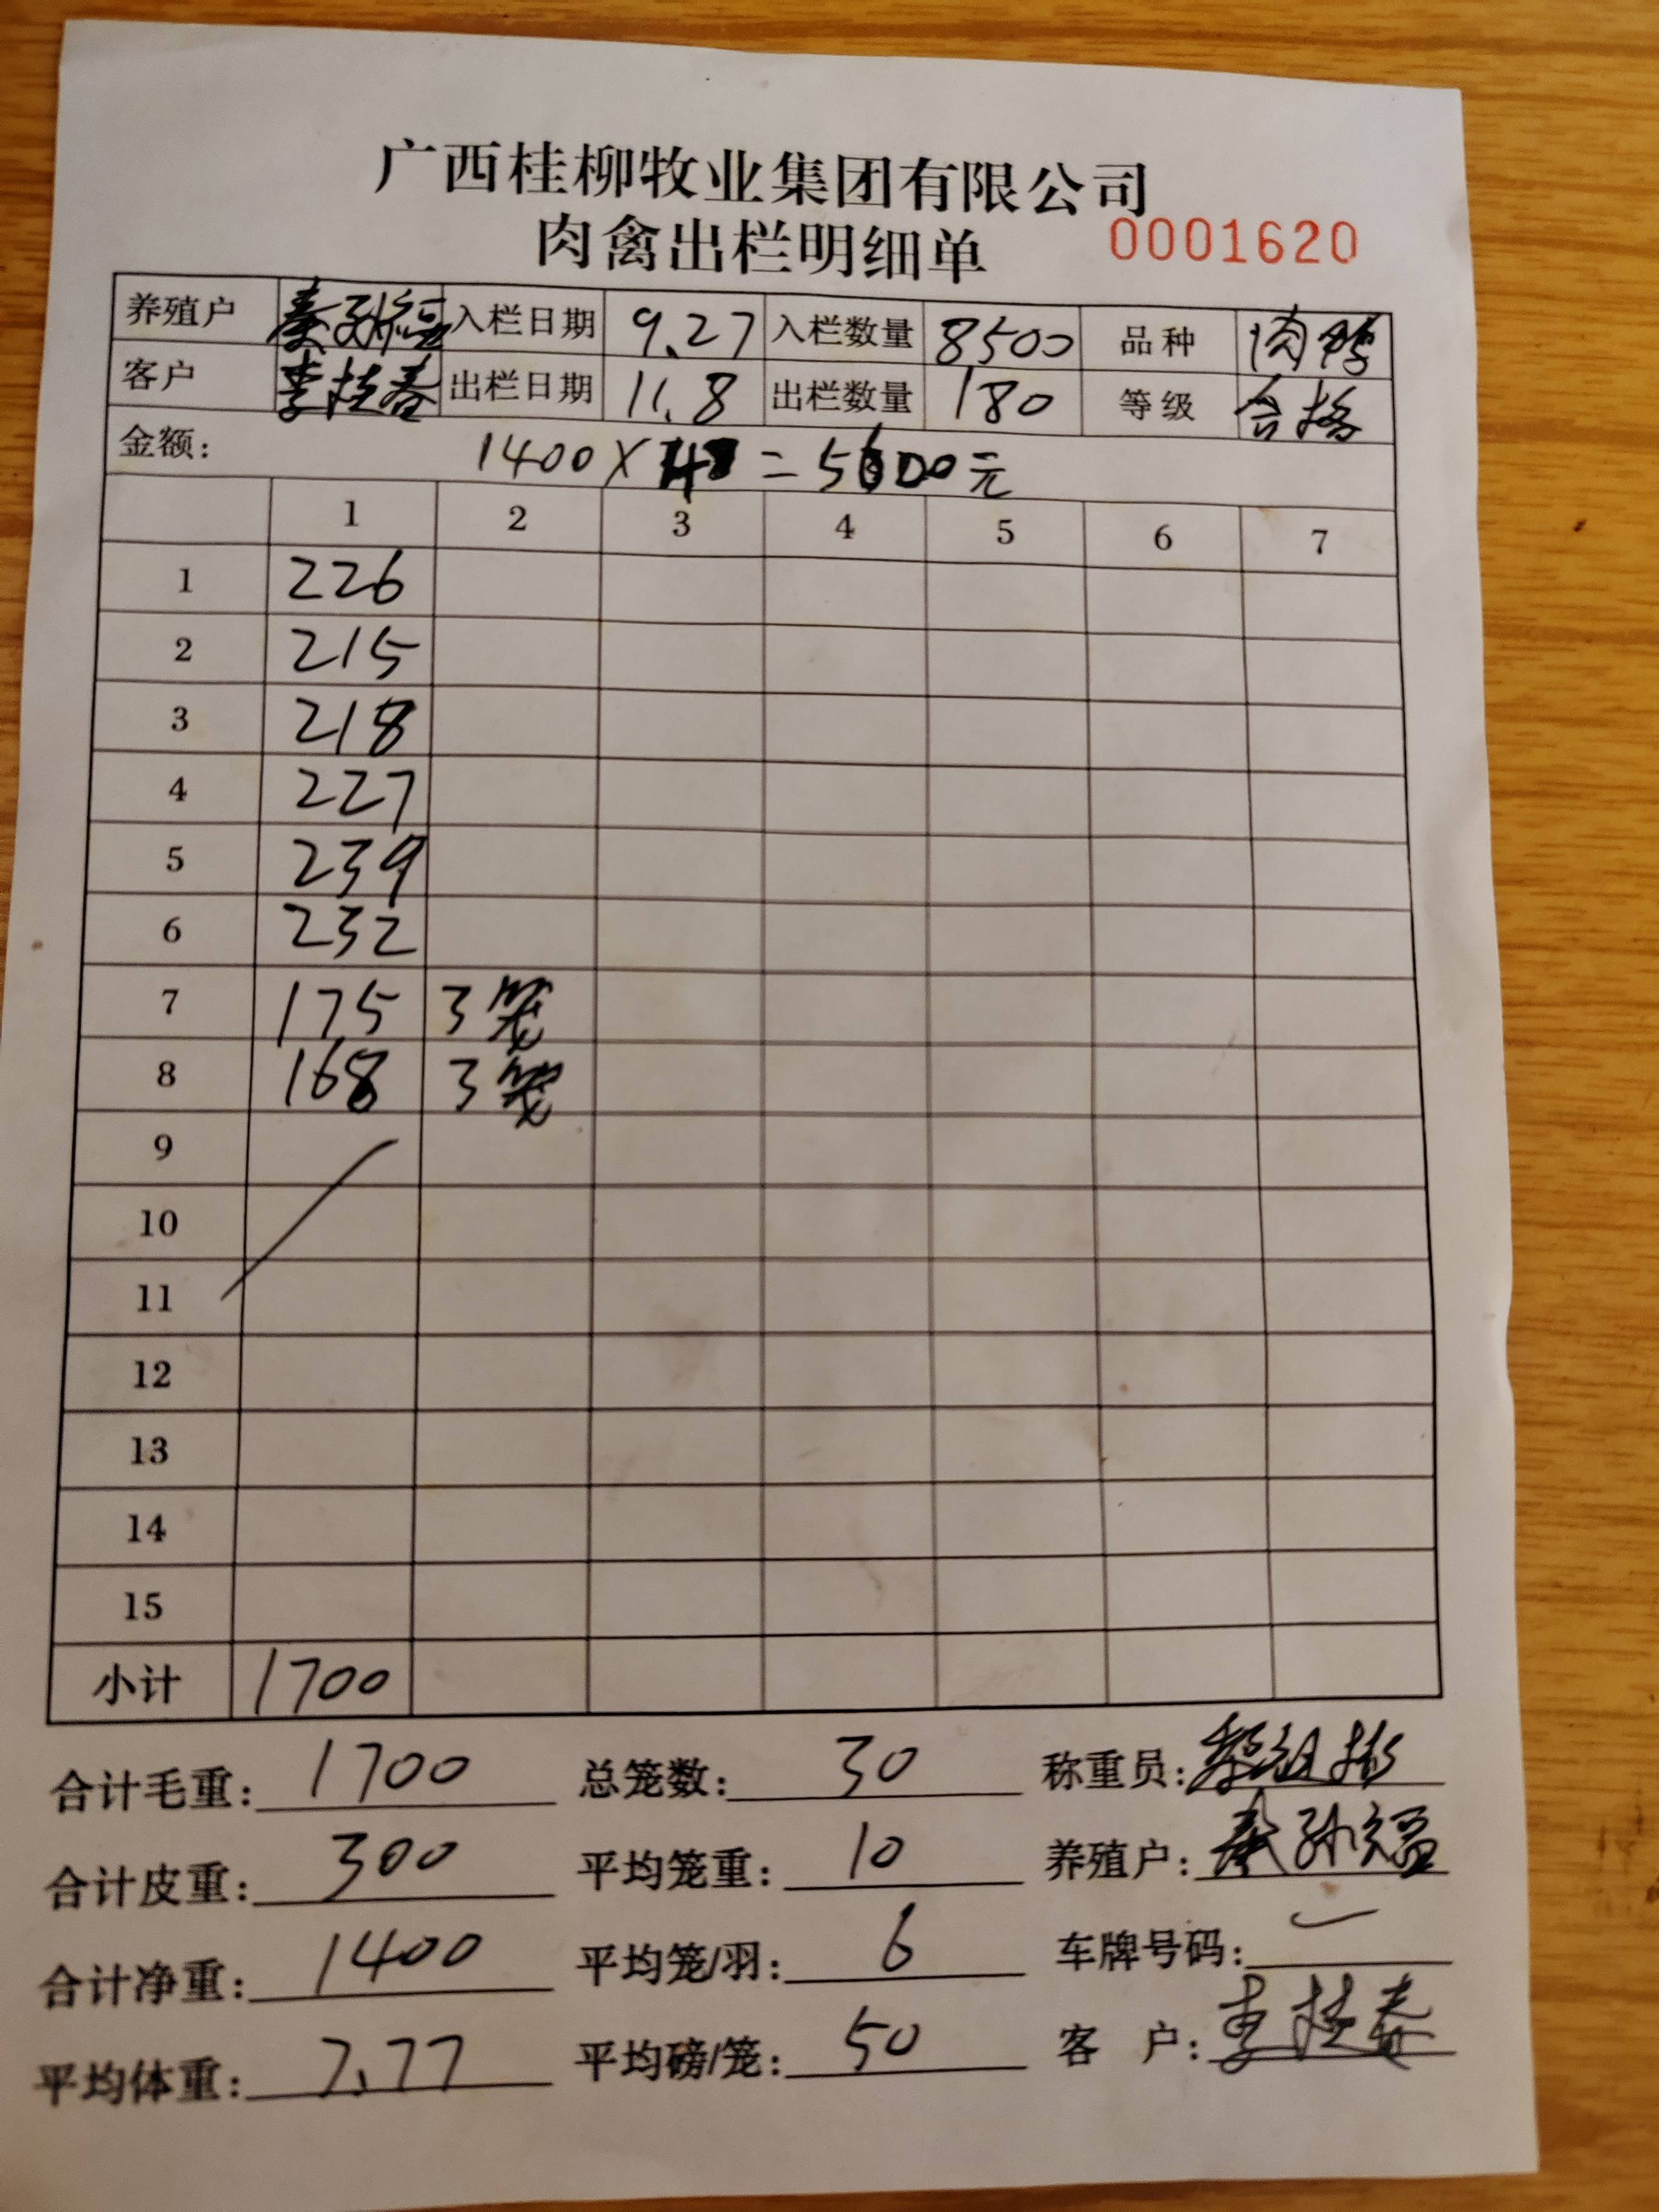 广西桂柳牧业集团有限公司
肉禽出栏明细单 0001620
养殖户 秦孙福 入栏日期 9.27 入栏数量 8500 品种 肉鸭
客户 李扶春 出栏日期 11.8 出栏数量 180 等级 合格
金额: 1400× =5600元
1 2 3 4 5 6 7
1 226
2 215
3 218
4 227
5 239
6 232
7 175 3笼
8 168 3笼
9
10
11
12
13
14
15
小计 1700
合计毛重: 1700 总笼数: 30 称重员:
合计皮重: 300 平均笼重: 10 养殖户: 秦孙福
合计净重: 1400 平均笼/羽: 6 车牌号码:
平均体重: 7.77 平均磅/笼: 50 客 户: 李扶春